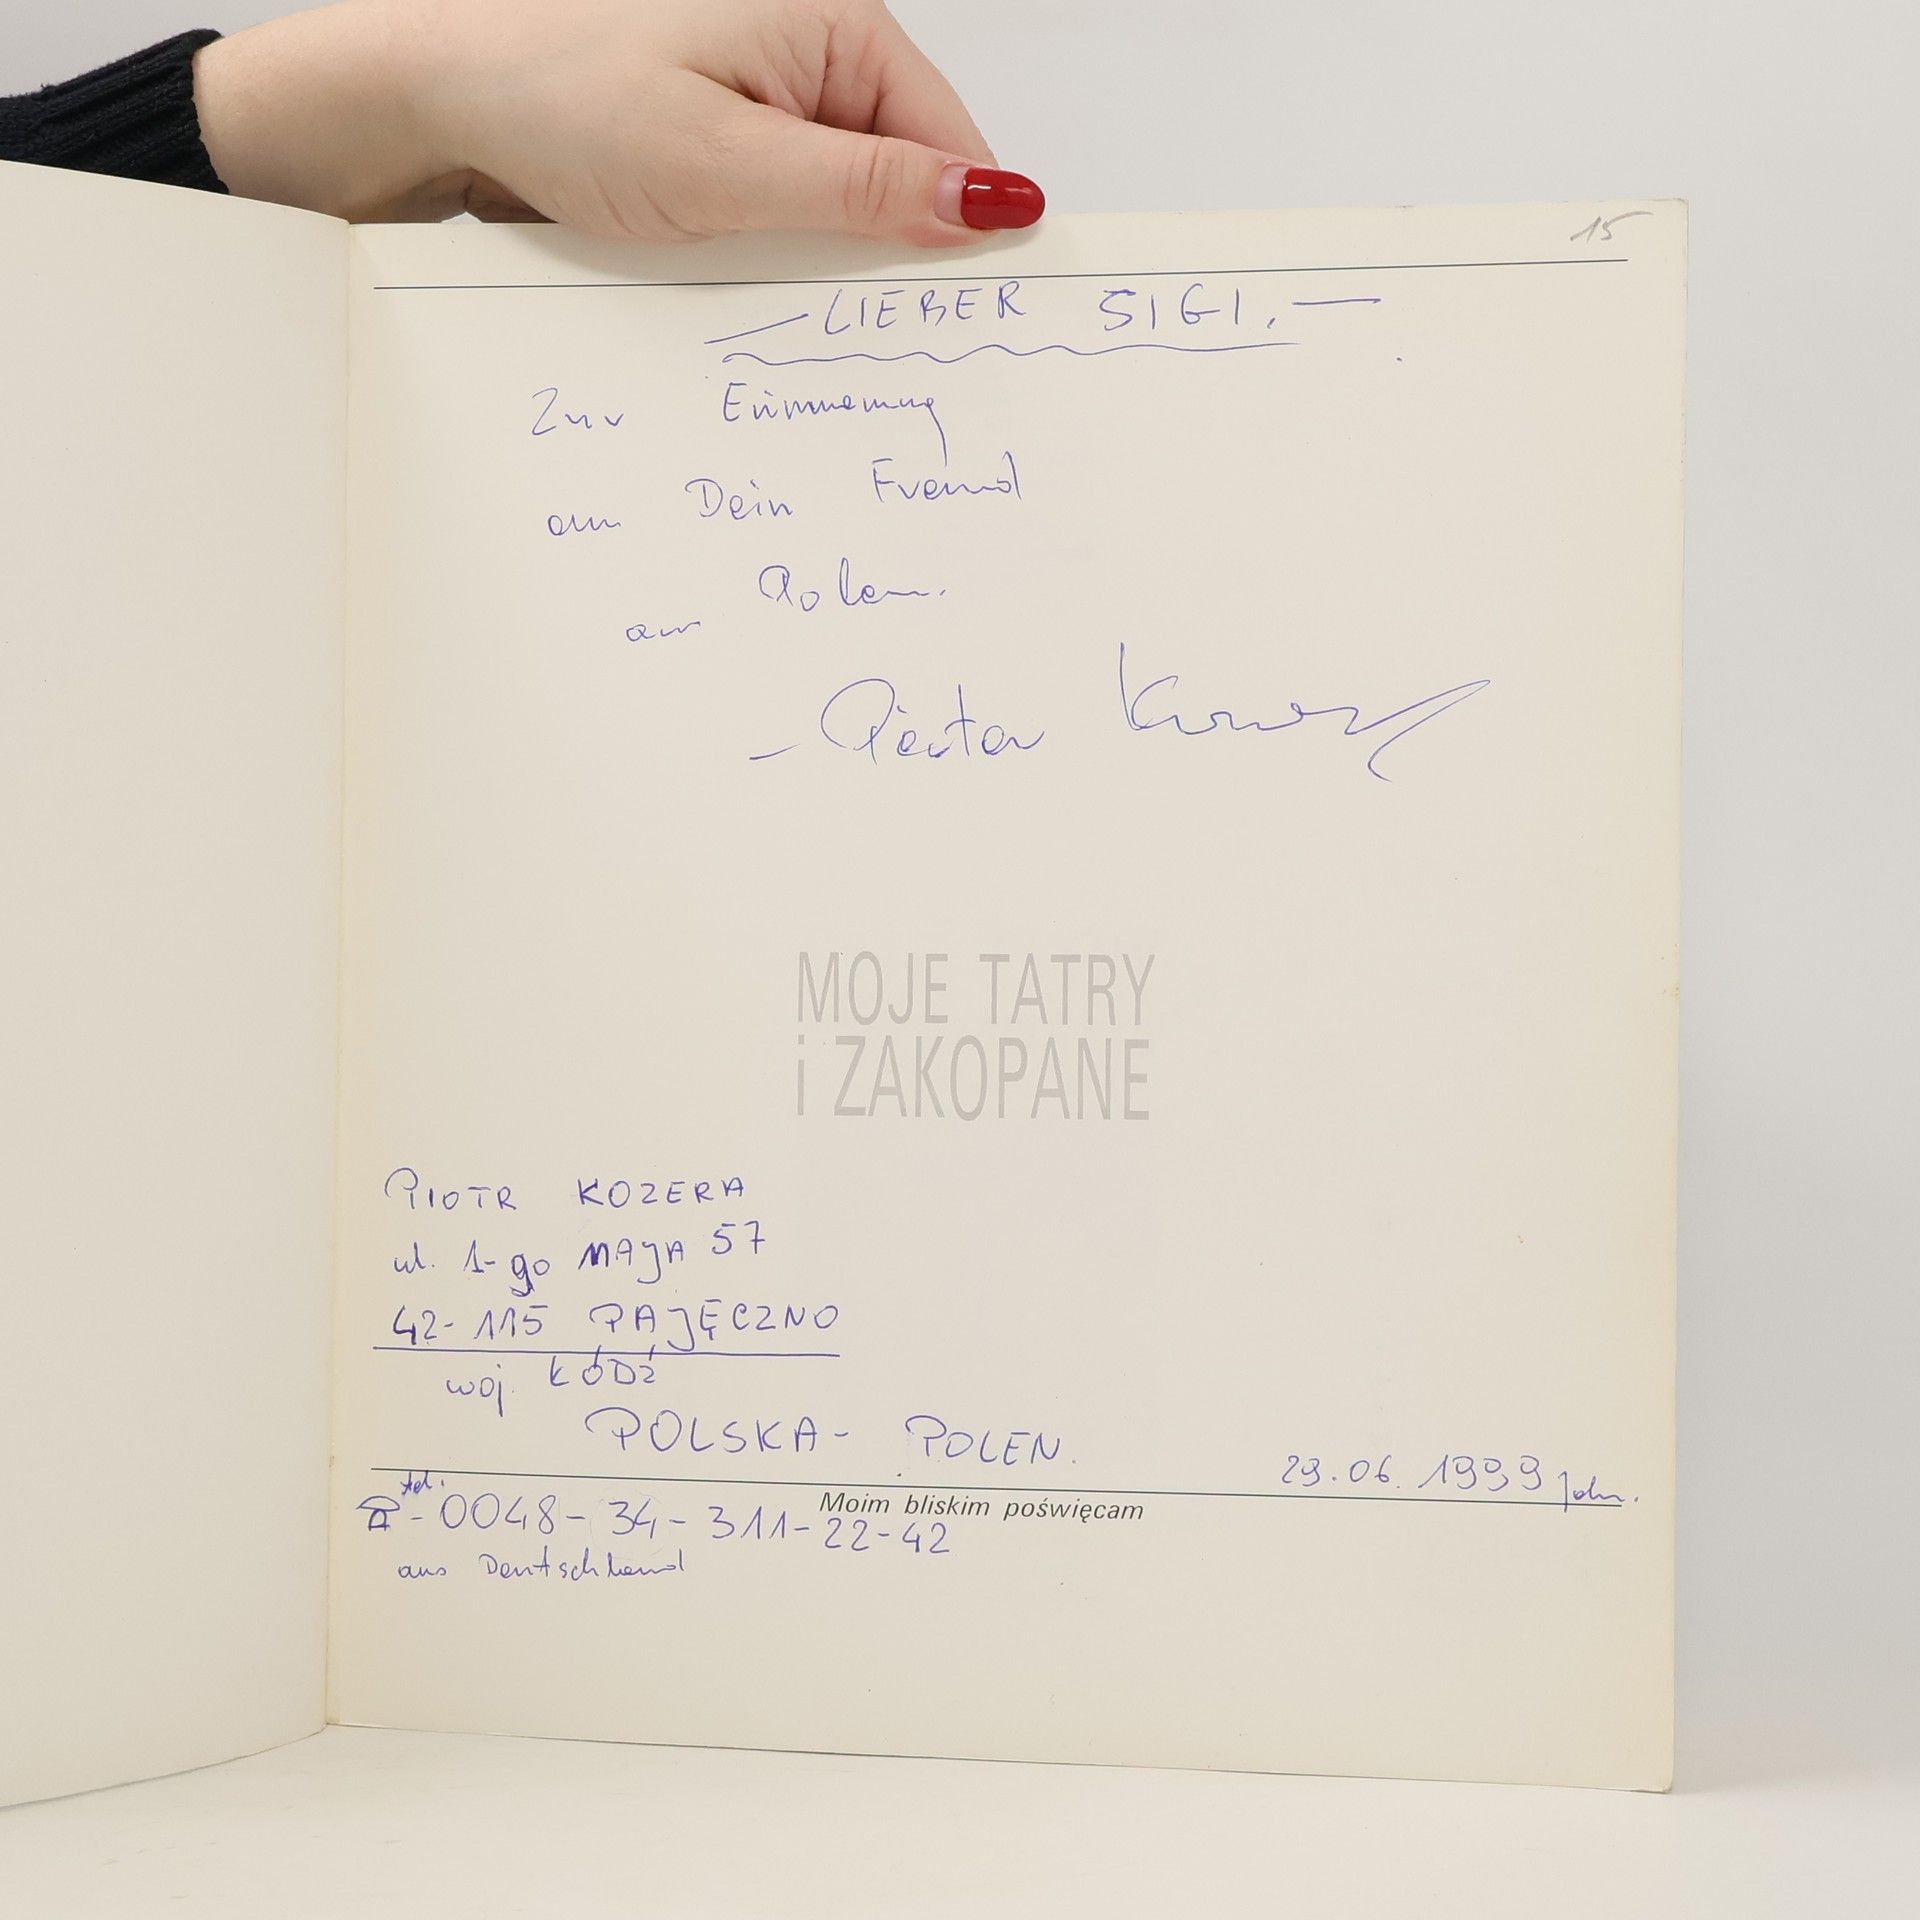 15
- LIEBER SIGI. -
Zur Erinnerung
an Dein Freund
aus Polen.
- Piotr
MOJE TATRY
i ZAKOPANE
PIOTR KOZERA
ul. 1-go MAJA 57
42-115 PAJĘCZNO
woj. ŁÓDŹ
POLSKA - POLEN.
29.06.1999
Moim bliskim poświęcam
tel.
☎ - 0048-34-311-22-42
aus Deutschland